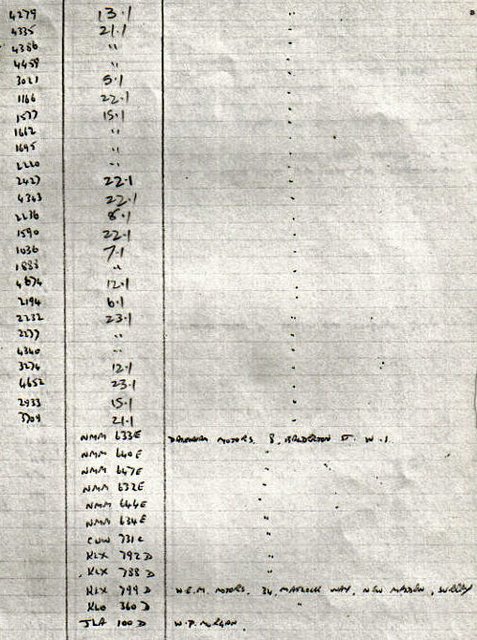 4279 13.1 "
4335 21.1 "
4386 " "
4459 " "
3021 5.1 "
1166 22.1 "
1577 15.1 "
1662 " "
1695 " "
2220 " "
2427 22.1 "
4343 22.1 "
2236 8.1 "
1590 22.1 "
1036 7.1 "
1888 " "
4674 12.1 "
2194 6.1 "
2232 23.1 "
2277 " "
4340 " "
3274 12.1 "
4652 23.1 "
2933 15.1 "
3704 21.1 "
NMM 633E MOTORS, 8, BALDERTON ST. W.1.
NMM 640E "
NMM 647E "
NMM 632E "
NMM 644E "
NMM 634E "
CUW 731C "
KLX 792D "
KLX 788D "
KLX 799D W.E.M. MOTORS, 34, MATLOCK WAY, NEW MALDEN, SURREY
KLO 360D "
JLA 100D W.P. MORGAN.